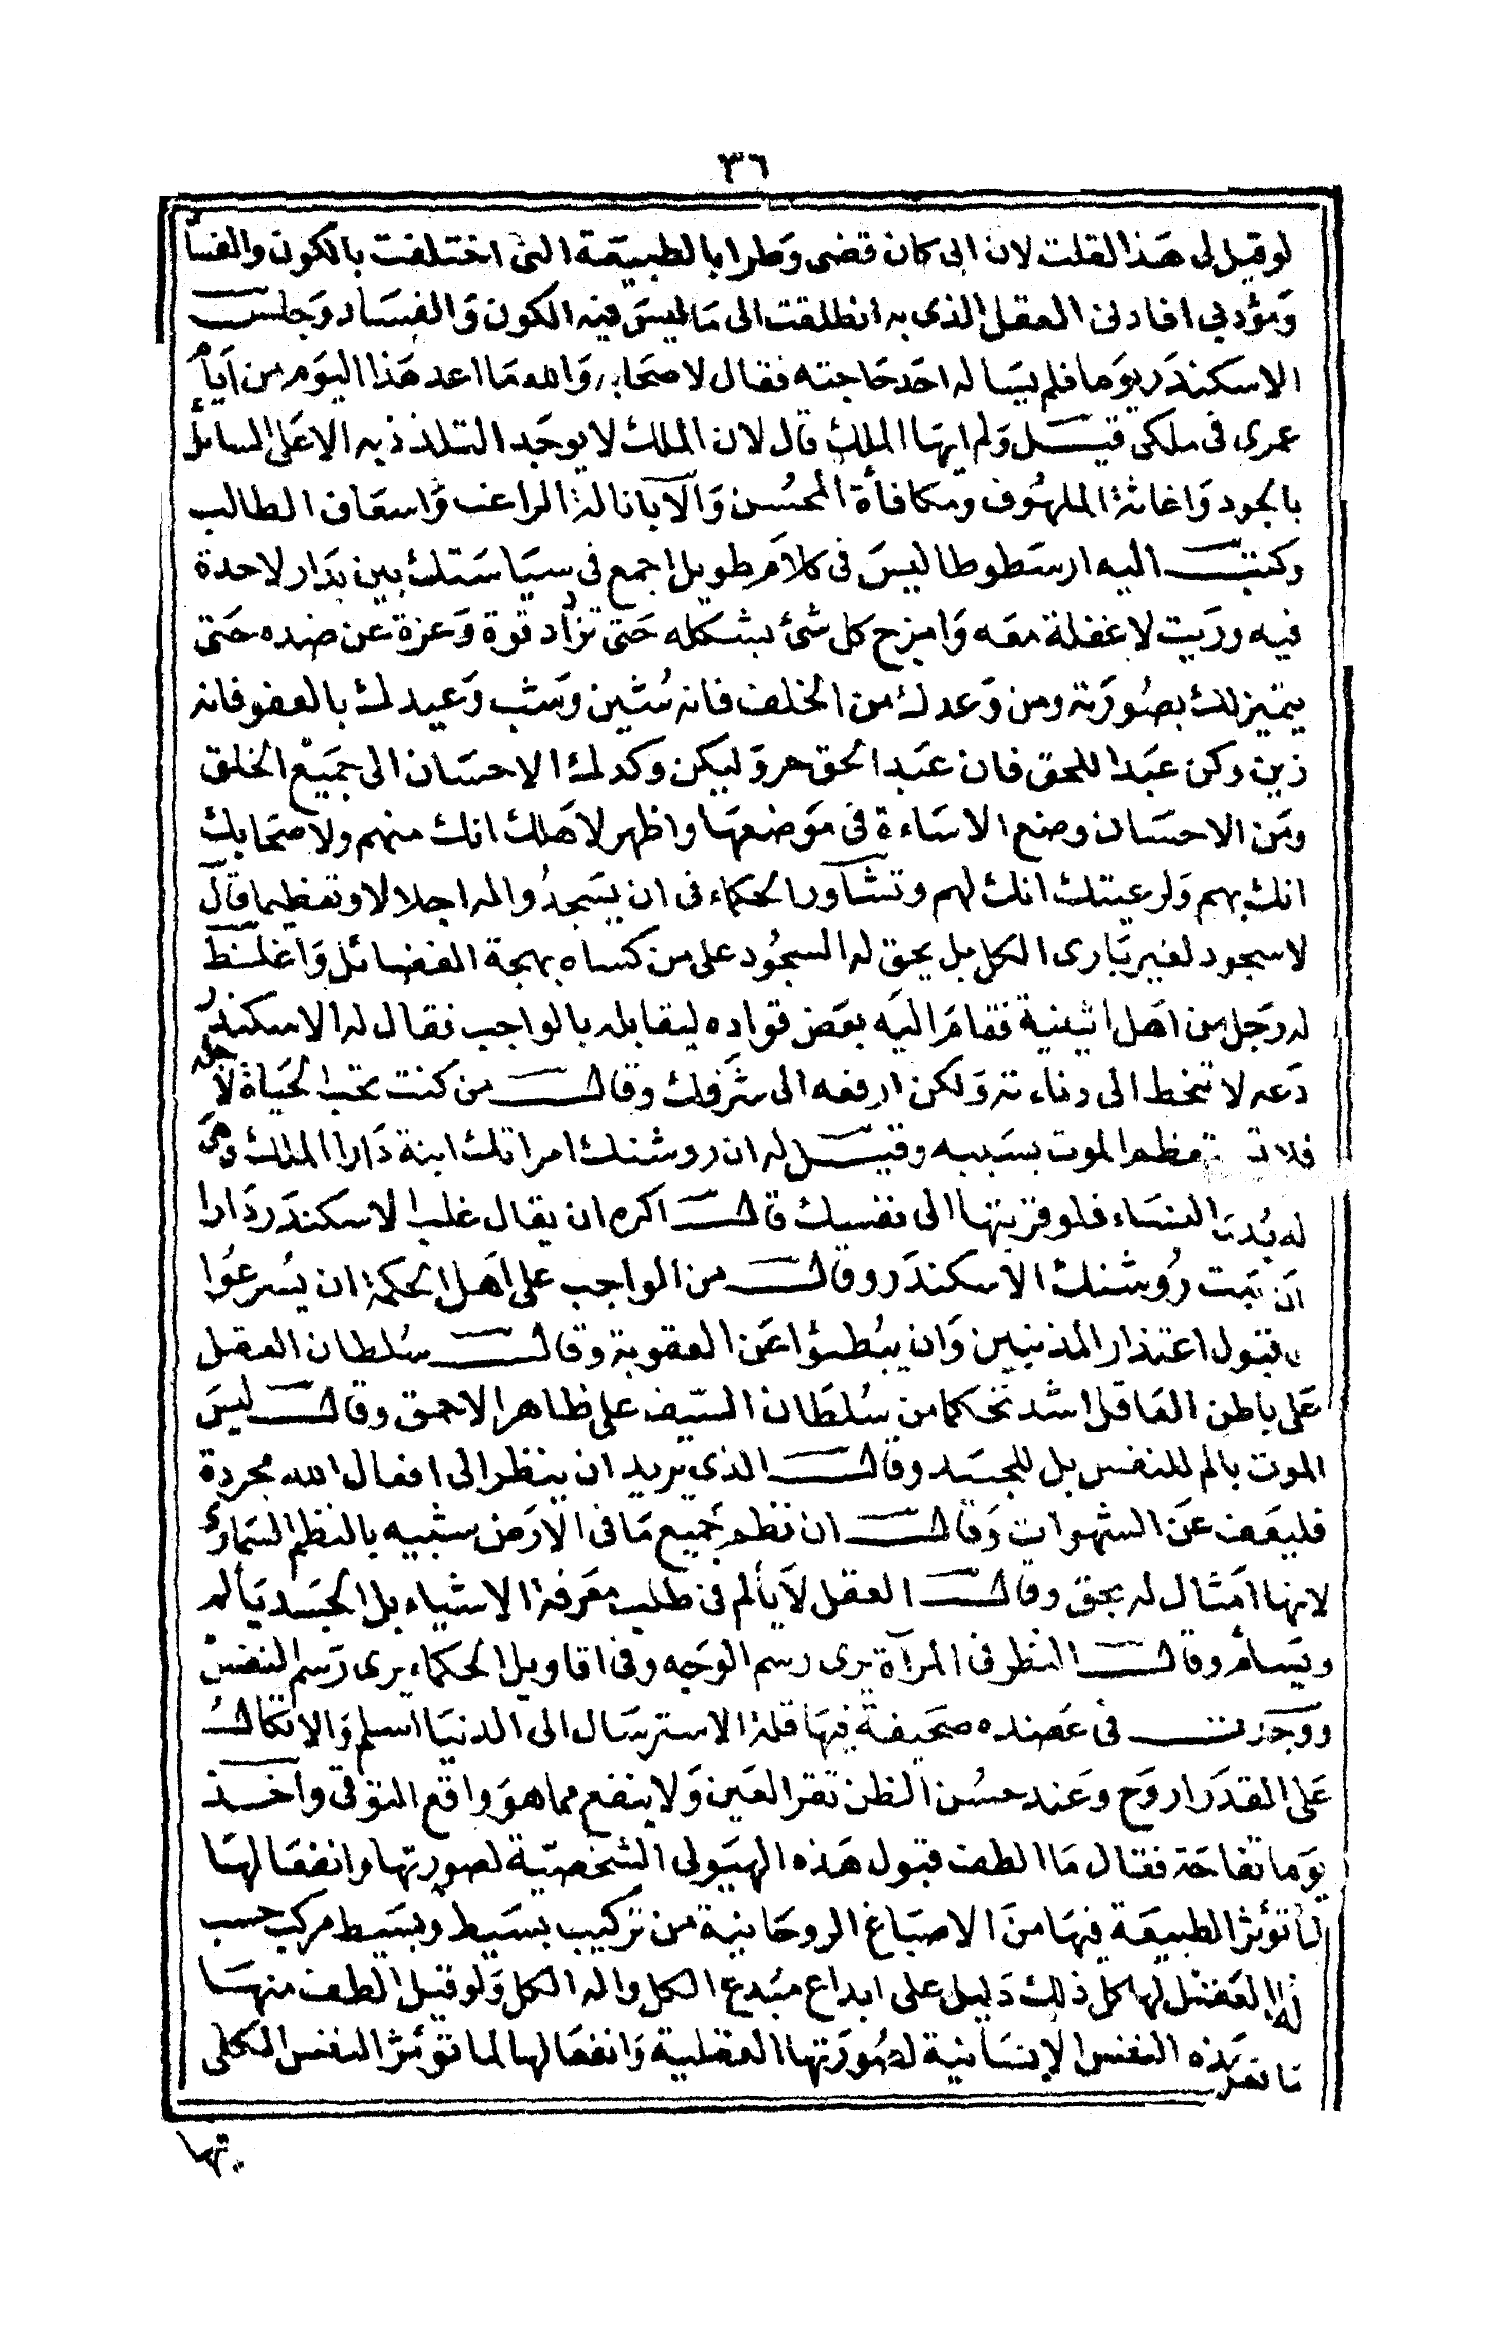 ٣٦
لو قيل لى هذا لقلت لان ابى كان قضى وطرا بالطبيعة التى اختلفت بالكون والفسا
ومؤدبي افادنى العقل الذى به انطلقت الى ما ليس فيه الكون والفساد وجلس
الاسكندر يوما فلم يساله احد حاجته فقال لاصحابه والله ما اعد هذا اليوم من ايام
عمرى فى ملكى قيل ولم ايها الملك قال لان الملك لا يوجد التلذذ به الا على السائل
بالجود واغاثة الملهوف ومكافأة المحسن والا بانالة الراغب واسعاف الطالب
وكتب اليه ارسطوطاليس فى كلام طويل اجمع فى سياستك بين بدار لا حدة
فيه وريث لا غفلة معه وامزج كل شئ بشكله حتى تزاد قوة وعزة عن ضده حتى
يتميز لك بصورته ومن وعدك من الخلف فانه شين وشب وعيدك بالعفو فانه
زين وكن عبدا للحق فان عبد الحق حر وليكن وكدك الاحسان الى جميع الخلق
ومن الاحسان وضع الاساءة فى موضعها واظهر لاهلك انك منهم ولاصحابك
انك بهم ولرعيتك انك لهم وتشاور الحكماء فى ان يسجدوا له اجلالا وتعظيما قال
لا سجود لغير بارى الكل بل يحق له السجود على من كساه بهجة الفضائل واغلظ
له رجل من اهل اثينية فقام اليه بعض قواده ليقابله بالواجب فقال له الاسكندر
دعه لا تنحط الى دناءته ولكن ارفعه الى شرفك وقال من كنت تحب الحياة لاجله
فلا تستعظم الموت بسببه وقيل له ان روشنك امراتك ابنة دارا الملك وهى
له يد النساء فلو قربتها الى نفسك قال اكره ان يقال غلب الاسكندر دارا
ان بت روشنك الاسكندر وقال من الواجب على اهل الحكمة ان يسرعوا
قبول اعتذار المذنبين وان يبطئوا عن العقوبة وقال سلطان العقل
على باطن العاقل اشد تحكما من سلطان السيف على ظاهر الاحمق وقال ليس
الموت بالم للنفس بل للجسد وقال الذى يريد ان ينظر الى افعال الله مجردة
فليعف عن الشهوات وقال ان نظم جميع ما فى الارض شبيه بالنظم السماوى
لانها امثال له بحق وقال العقل لا يألم فى طلب معرفة الاشياء بل الجسد يألم
ويسأم وقال النظر فى المرآة يرى رسم الوجه وفى اقاويل الحكماء يرى رسم النفس
ووجدت فى عضده صحيفة فيها قلة الاسترسال الى الدنيا اسلم والاتكال
على القدر اروح وعند حسن الظن تقر العين ولا ينفع مما هو واقع التوقى واخذ
يوما تفاحة فقال ما الطف قبول هذه الهيولى الشخصية لصورتها وانفعالها
لما تؤثر الطبيعة فيها من الاصباغ الروحانية من تركيب بسيط وبسيط مركب حسب
العقل لها كل ذلك دليل على ابداع مبدع الكل واله الكل ولو قيل الطف منها
هذه النفس الانسانية لصورتها العقلية وانفعالها لما تؤثر النفس الكلى